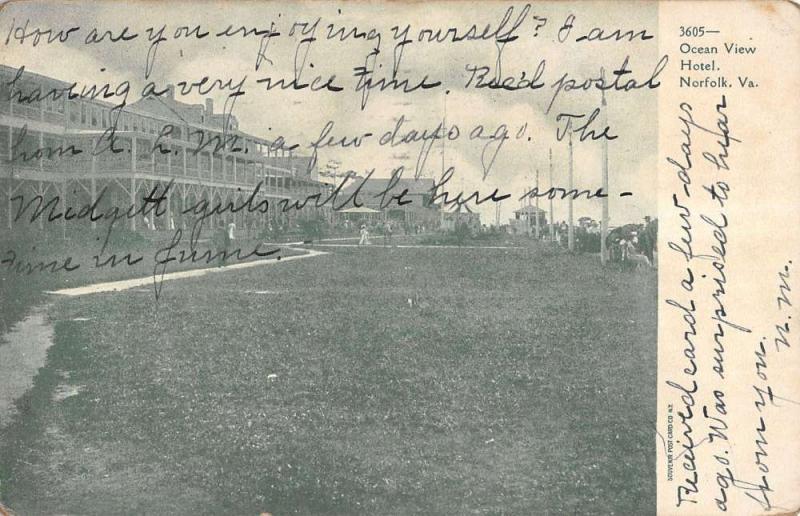 How are you enjoying yourself? I am
having a very nice time. Rec'd postal
from A. L. M. a few days ago. The
Midgett girls will be here some-
time in June.
3605—
Ocean View
Hotel,
Norfolk, Va.
Received card a few days
ago. Was surprised to hear
from you. N. M.
SOUVENIR POST CARD CO. N.Y.